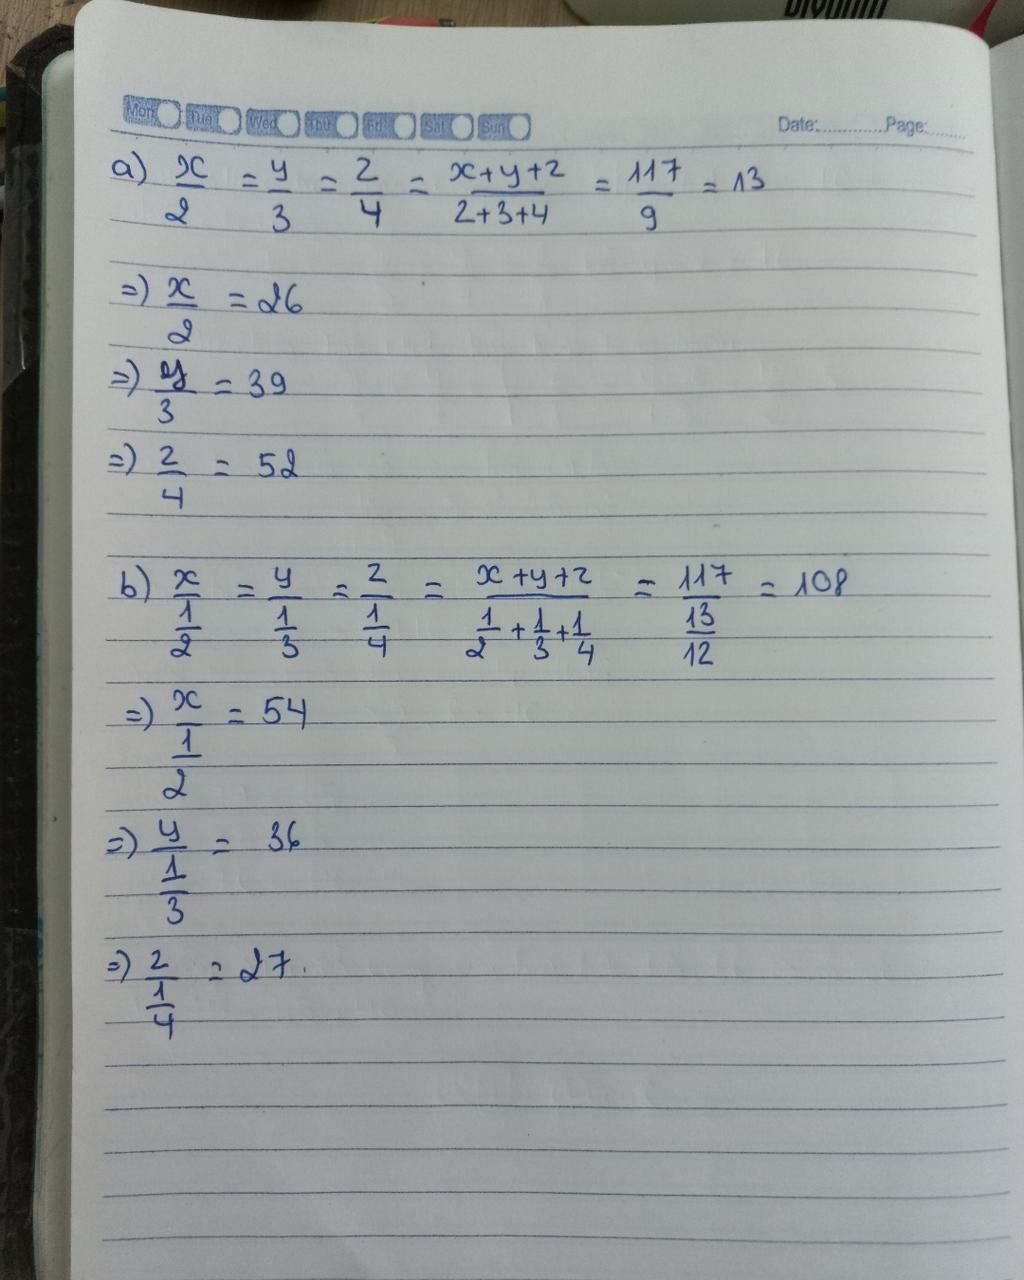 Mon Tue Wed Thu Fri Sat Sun Date:............Page:........
a) x/2 = y/3 = z/4 = (x+y+z)/(2+3+4) = 117/9 = 13
=) x/2 = 26
=) y/3 = 39
=) z/4 = 52
b) x/(1/2) = y/(1/3) = z/(1/4) = (x+y+z)/(1/2+1/3+1/4) = 117/(13/12) = 108
=) x/(1/2) = 54
=) y/(1/3) = 36
=) z/(1/4) = 27.